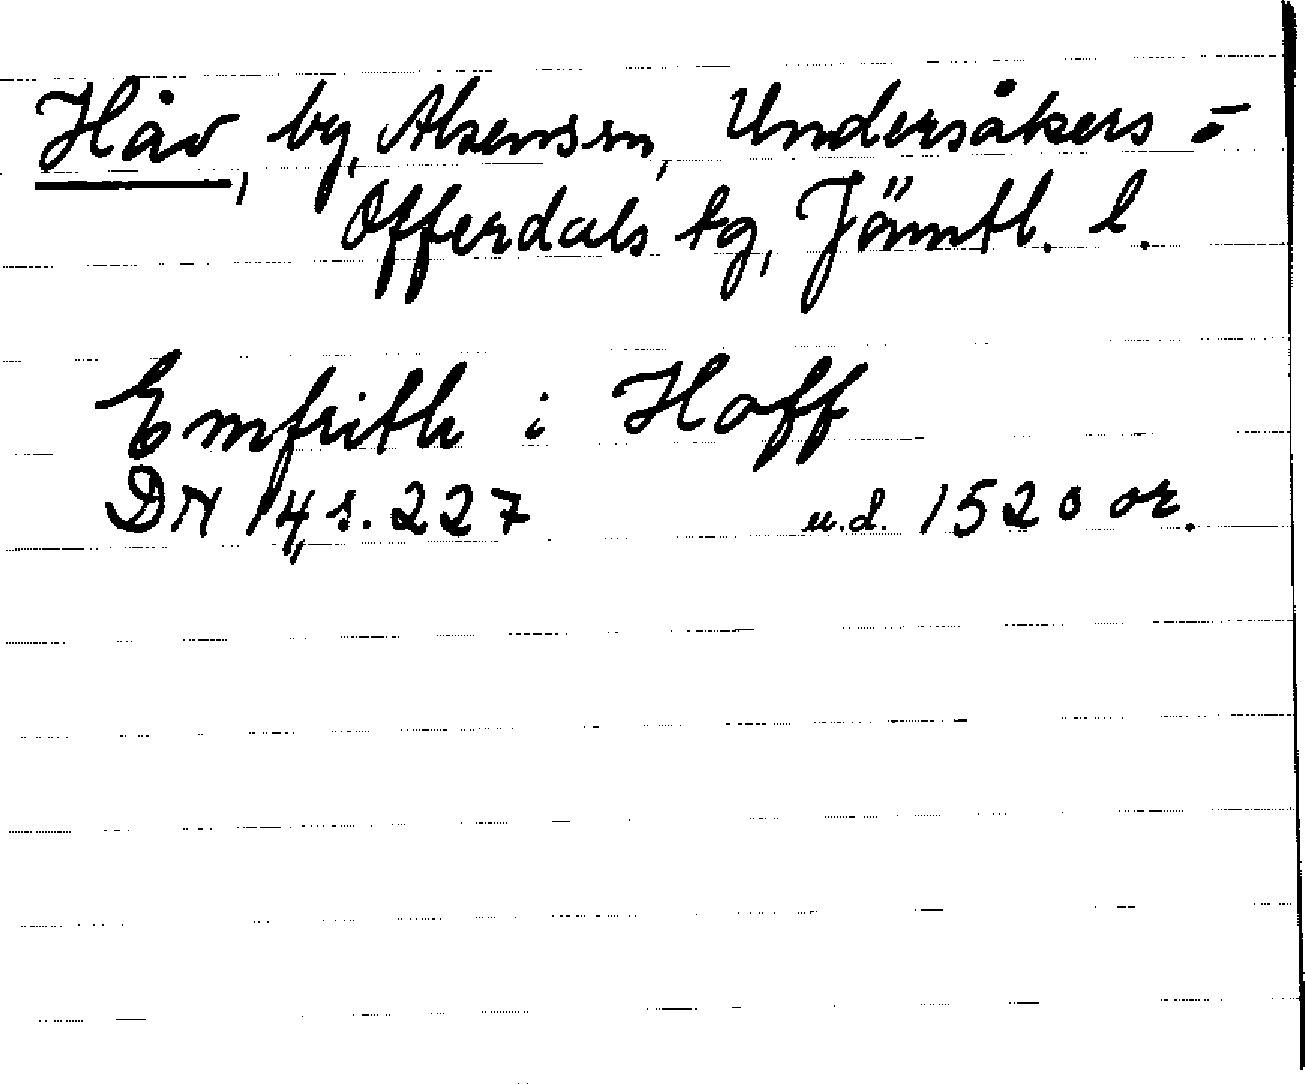 Håv, by, Alsens sn, Undersåkers =
Offerdals tg, Jämtl. l.
Emfrith i Hoff
DN 14, s. 227 u.d. 1520 or.